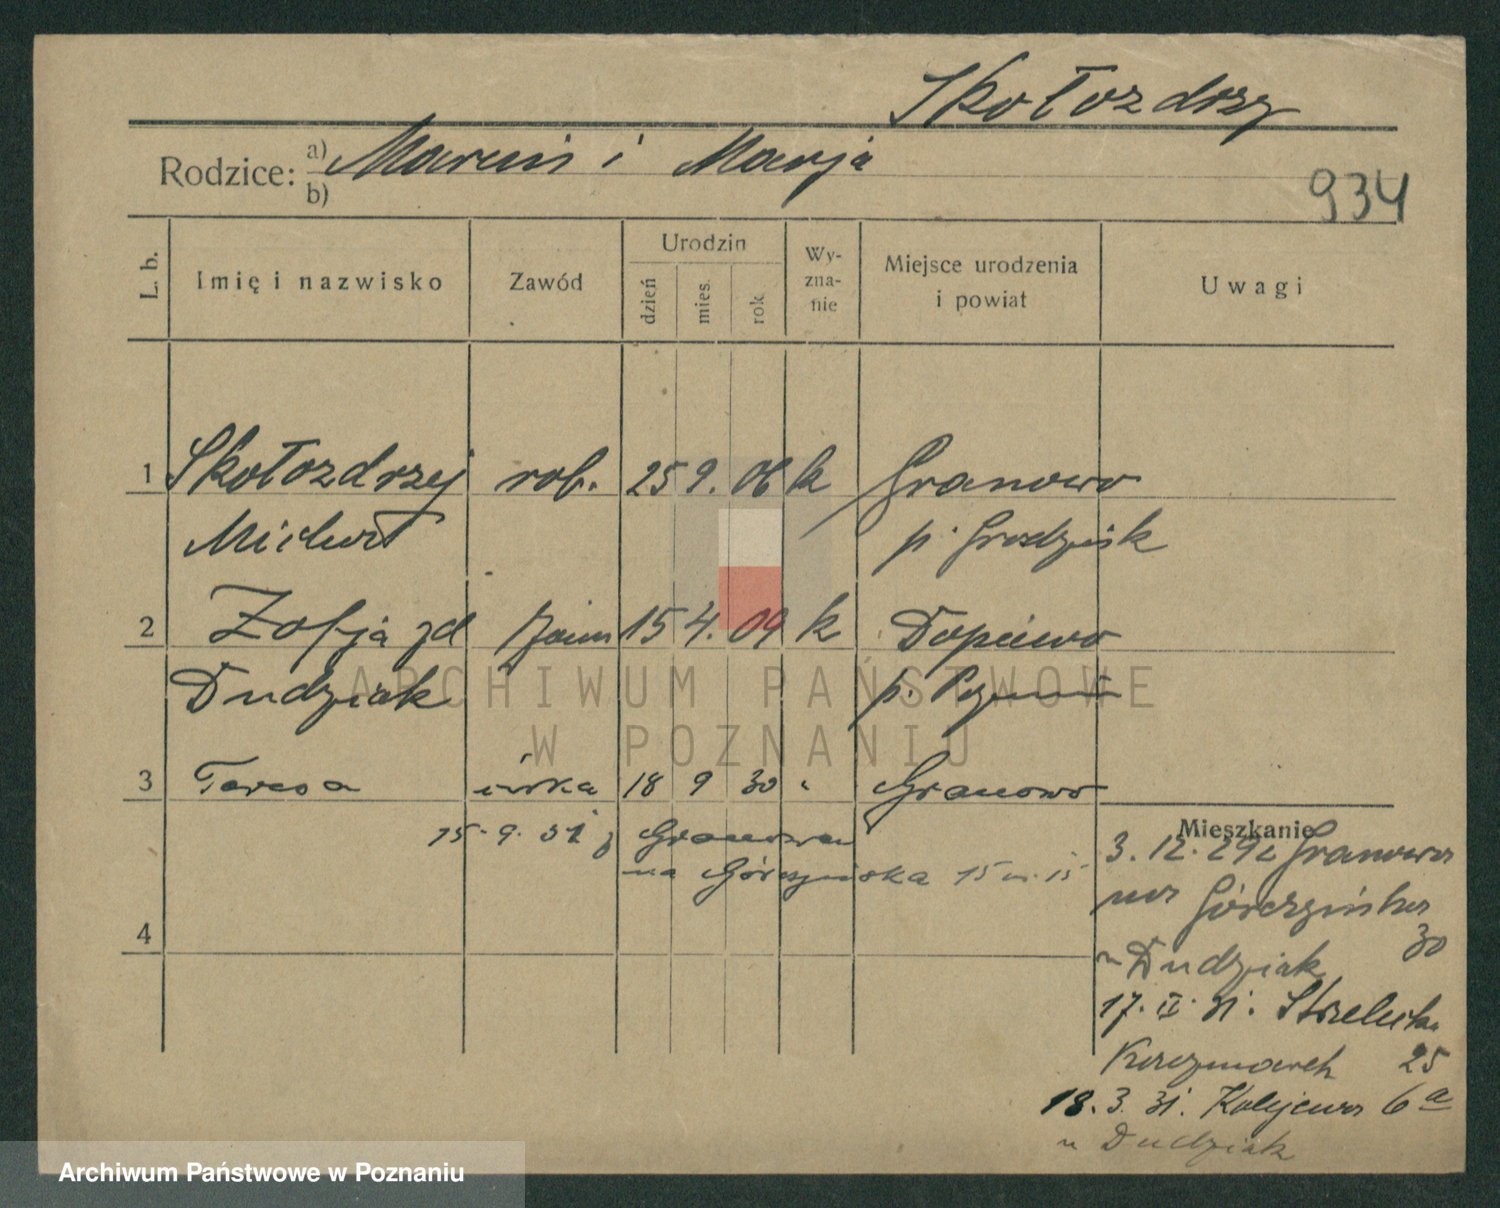 Skołozdrzy
Rodzice: a) Marcin i Marja
b)
934
L. b.
Imię i nazwisko
Zawód
Urodzin
dzień
mies.
rok
Wy-
zna-
nie
Miejsce urodzenia
i powiat
Uwagi
1 Skołozdrzej rob. 25 9. 06 k Granowo
Michał p. Grodzisk
2 Zofja zd 15 4. 09 k Dopiewo
Dudziak p. Poznań
3 Teresa córka 18 9 30 " Granowo
15. 9. 31 z Granowa
na Górczyńska 15 m. 15
4
Mieszkanie
3. 12. 29 z Granowa
na Górczyńska
30
u Dudziak
17. II. 31. Strzelecka
Kaczmarek 25
18. 3. 31. Kolejowa 6a
u Dudziak
ARCHIWUM PAŃSTWOWE
W POZNANIU
Archiwum Państwowe w Poznaniu